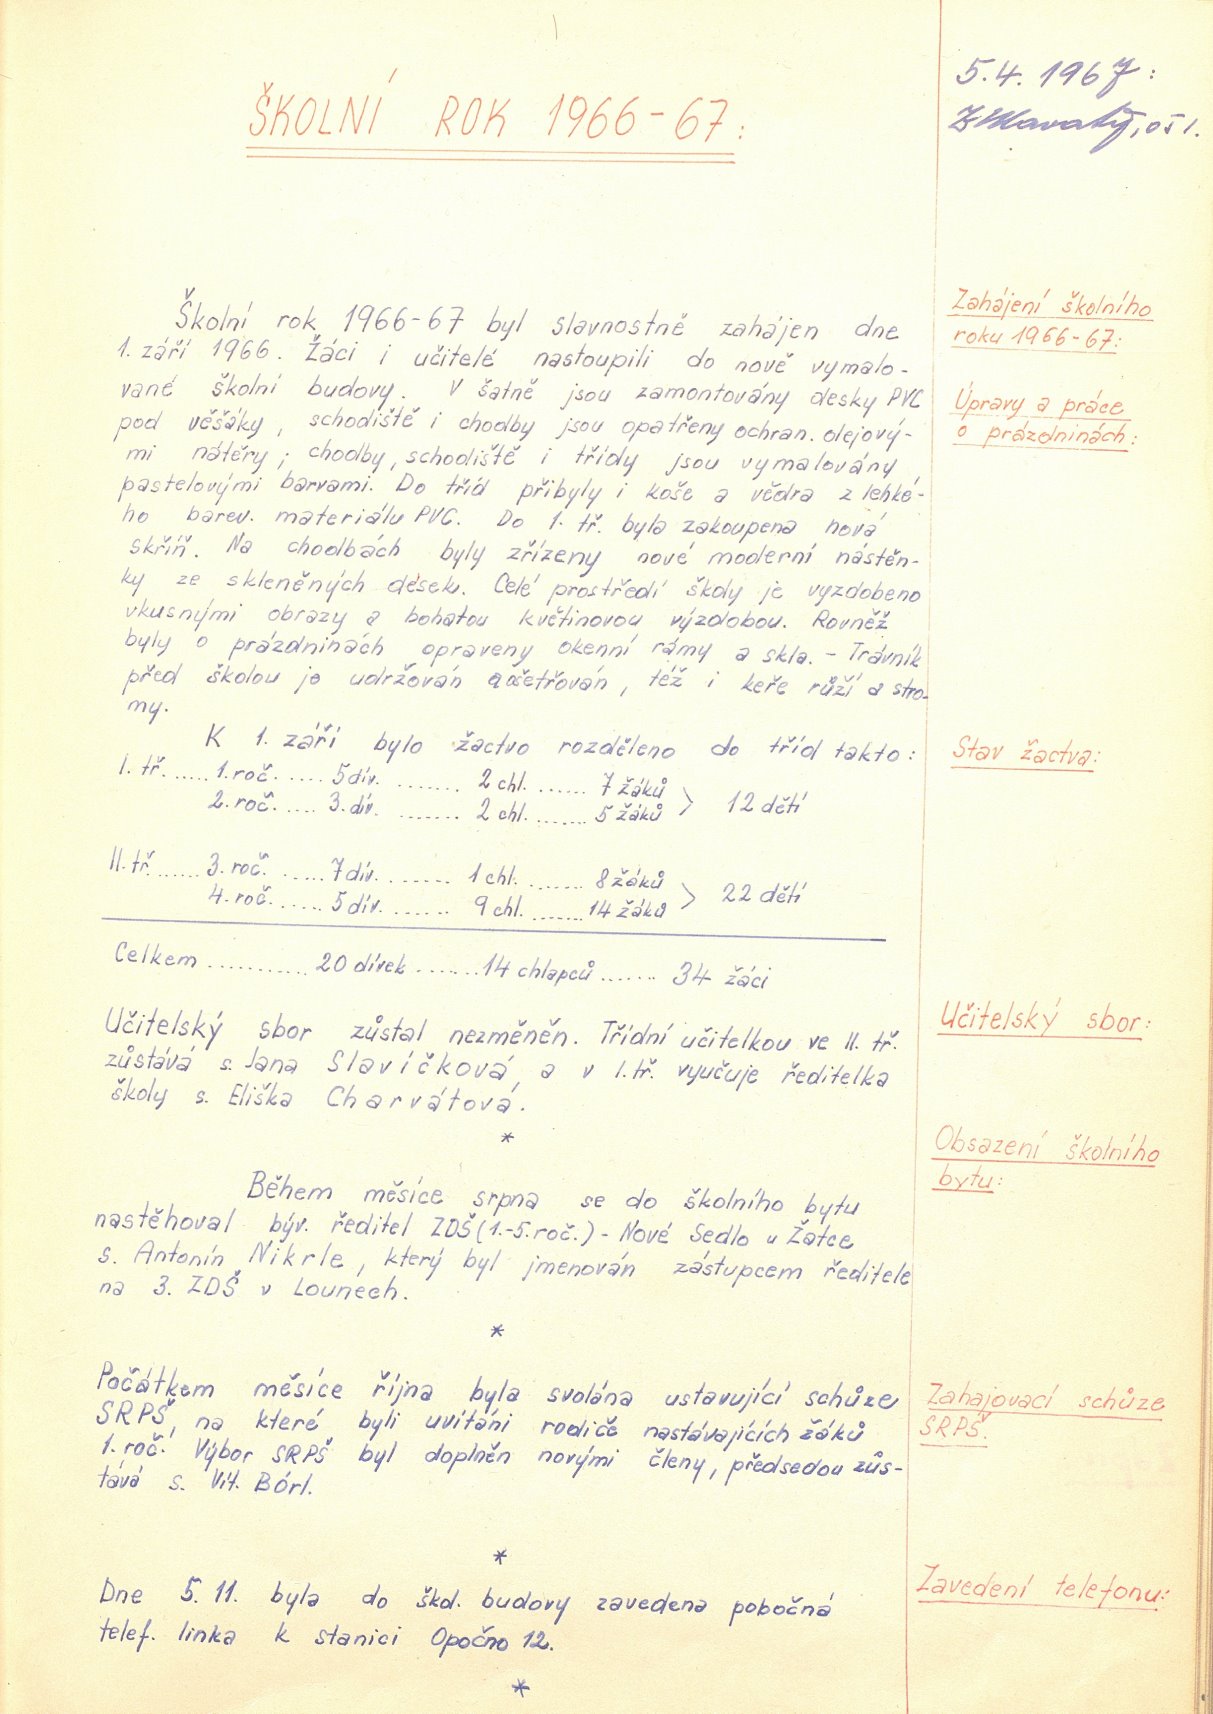 ŠKOLNÍ ROK 1966-67:
5.4.1967:
Školní rok 1966-67 byl slavnostně zahájen dne
1. září 1966. Žáci i učitelé nastoupili do nově vymalo-
vané školní budovy. V šatně jsou zamontovány desky PVC
pod věšáky, schodiště i chodby jsou opatřeny ochran. olejový-
mi nátěry; chodby, schodiště i třídy jsou vymalovány
pastelovými barvami. Do tříd přibyly i koše a vědra z lehké-
ho barev. materiálu PVC. Do 1. tř. byla zakoupena nová
skříň. Na chodbách byly zřízeny nové moderní nástěn-
ky ze skleněných desek. Celé prostředí školy je vyzdobeno
vkusnými obrazy a bohatou květinovou výzdobou. Rovněž
byly o prázdninách opraveny okenní rámy a skla. - Trávník
před školou je udržován a ošetřován, též i keře růží a stro-
my.
Zahájení školního
roku 1966-67:
Úpravy a práce
o prázdninách:
K 1. září bylo žactvo rozděleno do tříd takto:
Stav žactva:
I. tř. ..... 1. roč. ..... 5 dív. ........ 2 chl. ...... 7 žáků
2. roč. .... 3. dív. ........ 2 chl. ....... 5 žáků > 12 dětí
II. tř. ...... 3. roč. ..... 7 dív. ........ 1 chl. ....... 8 žáků
4. roč. ...... 5 dív. ....... 9 chl. ....... 14 žáků > 22 dětí
Celkem ........... 20 dívek ....... 14 chlapců ...... 34 žáci
Učitelský sbor zůstal nezměněn. Třídní učitelkou ve II. tř.
zůstává s. Jana Slavíčková, a v I. tř. vyučuje ředitelka
školy s. Eliška Charvátová.
Učitelský sbor:
*
Během měsíce srpna se do školního bytu
nastěhoval býv. ředitel ZDŠ (1.-5. roč.) - Nové Sedlo u Žatce
s. Antonín Nikrle, který byl jmenován zástupcem ředitele
na 3. ZDŠ v Lounech.
Obsazení školního
bytu:
*
Počátkem měsíce října byla svolána ustavující schůze
SRPŠ, na které byli uvítáni rodiče nastávajících žáků
1. roč. Výbor SRPŠ byl doplněn novými členy, předsedou zůs-
tává s. Vít. Börl.
Zahajovací schůze
SRPŠ.
*
Dne 5. 11. byla do škol. budovy zavedena pobočná
telef. linka k stanici Opočno 12.
Zavedení telefonu:
*